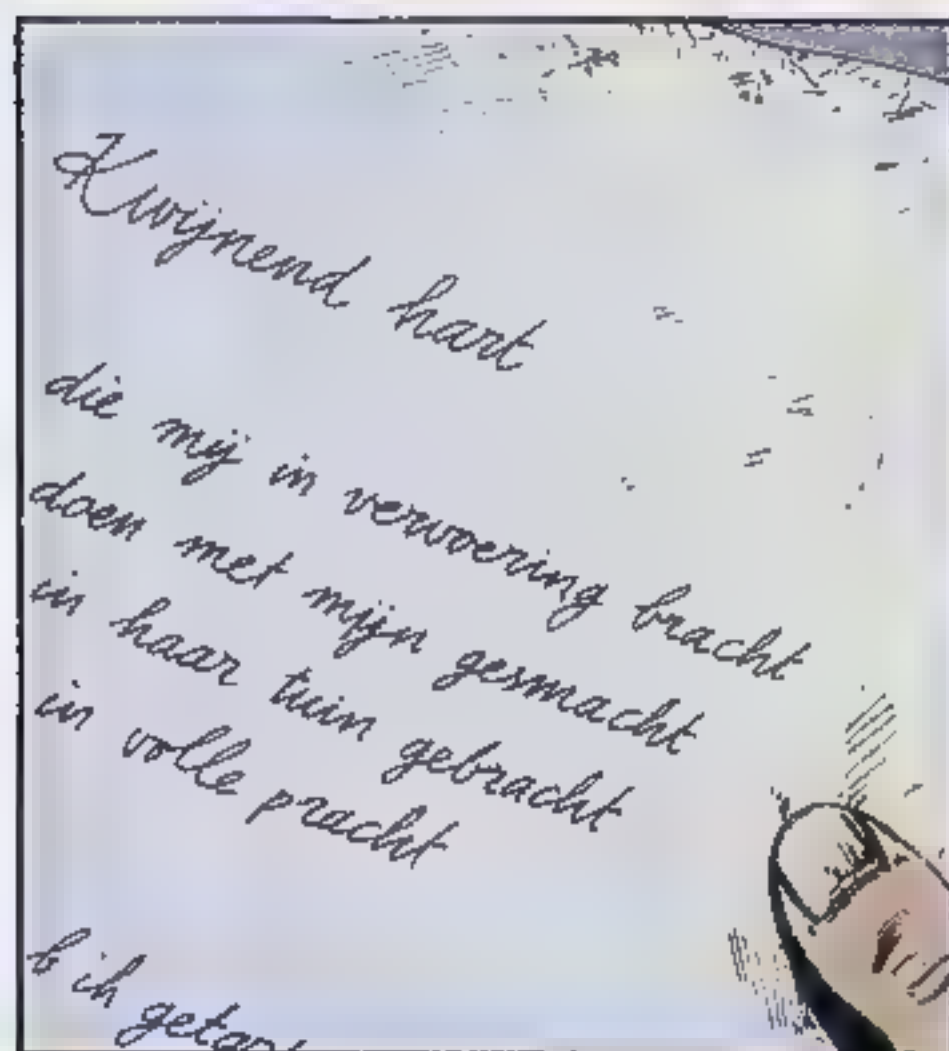 Kwijnend hart
die mij in vervoering bracht
doen met mijn gesmacht
in haar tuin gebracht
in volle pracht
b ik